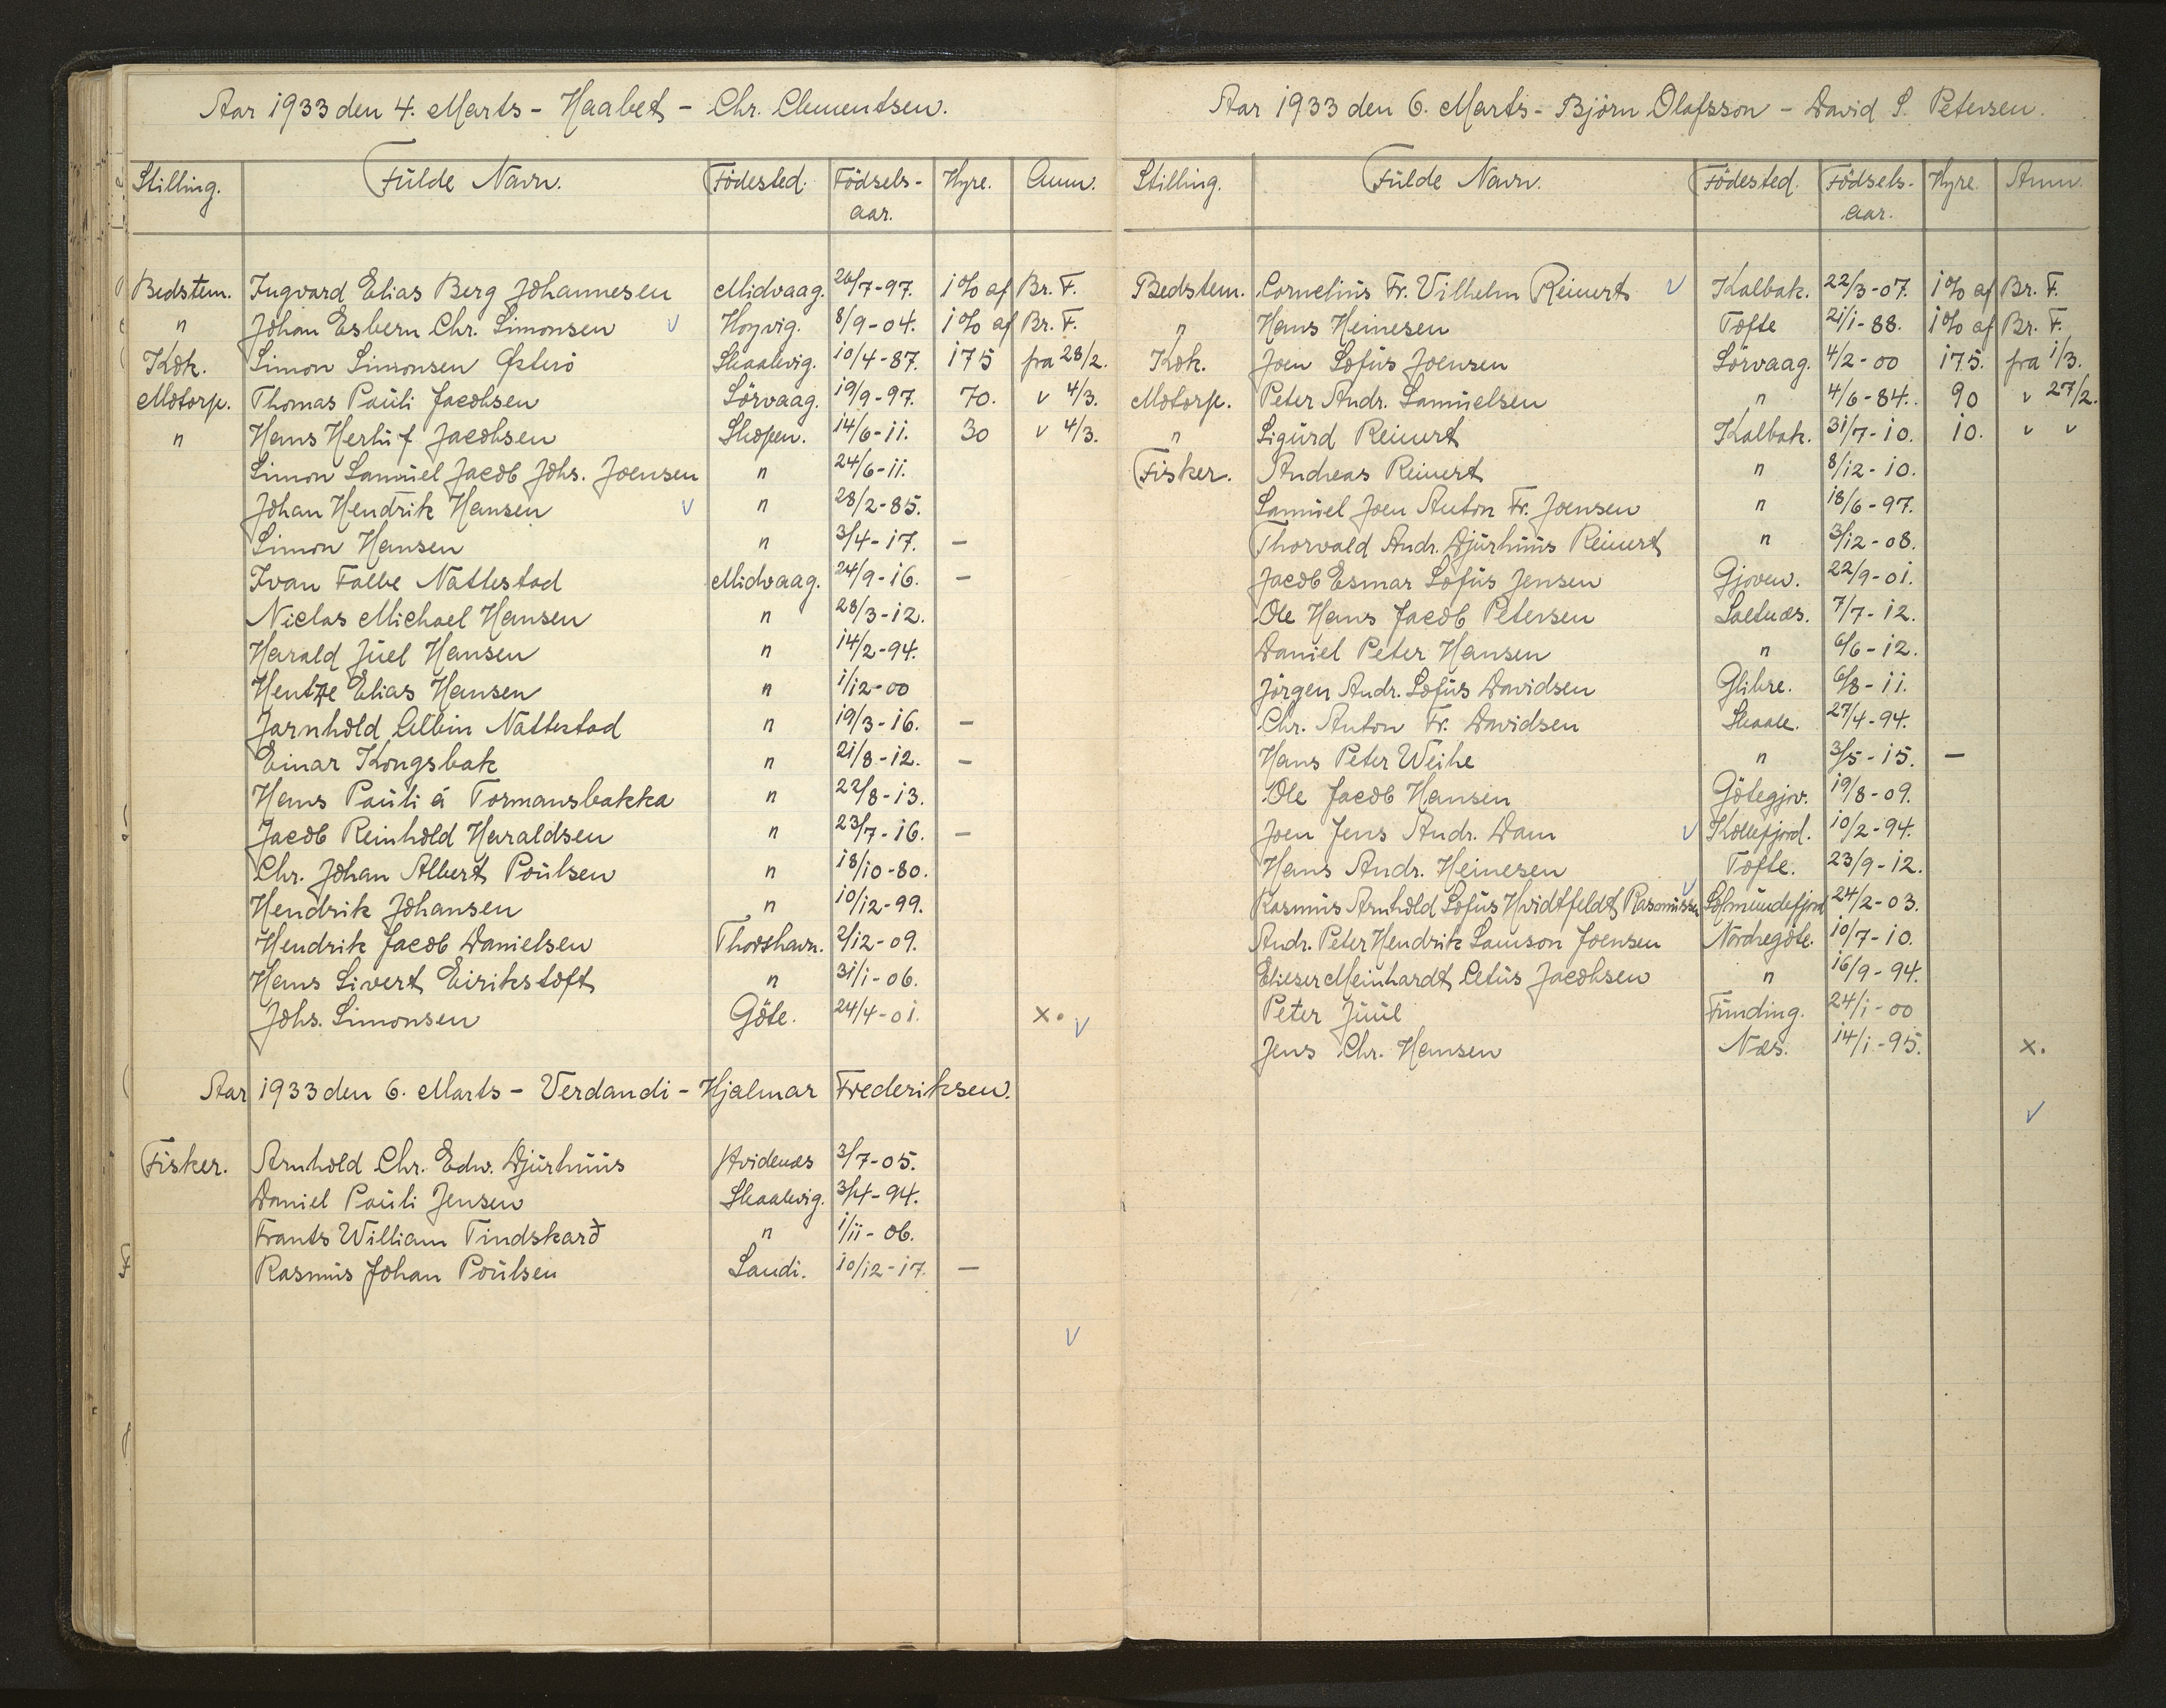 Aar 1933 den 4. Marts - Haabet - Chr. Clementsen.
Stilling. Fulde Navn. Födested. Födsels- Hyre. Anm.
aar.
Bedstem. Ingvard Elias Berg Johannesen Midvaag. 26/7-97. 1% af Br. F.
" Johan Esbern Chr. Simonsen v Hoyvig. 8/9-04. 1% af Br. F.
Kok. Simon Simonsen Østerö Skaalevig. 10/4-87. 175 fra 28/2.
Motorp. Thomas Pauli Jacobsen Sörvaag. 19/9-97. 70. v 4/3.
" Hans Herluf Jacobsen Skopen. 14/6-11. 30 v 4/3.
Simon Samuel Jacob Johs. Joensen " 24/6-11.
Johan Hendrik Hansen v " 28/2-85.
Simon Hansen " 3/4-17. —
Ivan Falbe Nattestad Midvaag. 24/9-16. —
Niclas Michael Hansen " 28/3-12.
Harald Juel Hansen " 14/2-94.
Hentze Elias Hansen " 1/12-00
Jarnhold Albin Nattestad " 19/3-16. —
Einar Kongsbak " 21/8-12. —
Hans Pauli á Tormansbakka " 22/8-13.
Jacob Reinhold Haraldsen " 23/7-16. —
Chr. Johan Albert Poulsen " 18/10-80.
Hendrik Johansen " 10/12-99.
Hendrik Jacob Danielsen Thorshavn. 2/12-09.
Hans Sivert Eirikstoft " 31/1-06.
Johs. Simonsen Göte. 24/4-01. x. v
Aar 1933 den 6. Marts - Verdandi - Hjalmar Frederiksen.
Fisker. Arnhold Chr. Edw. Djurhuus Hvidenæs 3/7-05.
Daniel Pauli Jensen Skaalevig. 3/4-94.
Frants William Tindskarð " 1/11-06.
Rasmus Johan Poulsen Sandi. 10/12-17. —
v
Aar 1933 den 6. Marts - Björn Olafsson - David S. Petersen.
Stilling. Fulde Navn. Födested. Födsels- Hyre. Anm.
aar.
Bedstem. Cornelius Fr. Vilhelm Reinert v Kalbak. 22/3-07. 1% af Br. F.
" Hans Heinesen Tofte 21/1-88. 1% af Br. F.
Kok. Joen Sofus Joensen Sörvaag. 4/2-00 175. fra 1/3.
Motorp. Peter Andr. Samuelsen " 4/6-84. 90 v 27/2.
" Sigurd Reinert Kalbak. 31/7-10. 10. v v
Fisker. Andreas Reinert " 8/12-10.
Samuel Joen Anton Fr. Joensen " 18/6-97.
Thorvald Andr. Djurhuus Reinert " 3/12-08.
Jacob Esmar Sofus Jensen Gjoven. 22/9-01.
Ole Hans Jacob Petersen Saltnæs. 7/7-12.
Daniel Peter Hansen " 6/6-12.
Jörgen Andr. Sofus Davidsen Glibre. 6/8-11.
Chr. Anton Fr. Davidsen Skaale. 27/4-94.
Hans Peter Weihe " 3/5-15. —
Ole Jacob Hansen Götegjov. 19/8-09.
Joen Jens Andr. Dam v Kollefjord. 10/2-94.
Hans Andr. Heinesen Tofte. 23/9-12.
Rasmus Arnhold Sofus Hvidtfeldt Rasmussen v Solmundefjord 24/2-03.
Andr. Peter Hendrik Samson Joensen Nordregöte. 10/7-10.
Elieser Meinhardt Cetus Jacobsen " 16/9-94.
Peter Juul Funding. 24/1-00
Jens Chr. Hansen Næs. 14/1-95. x.
v